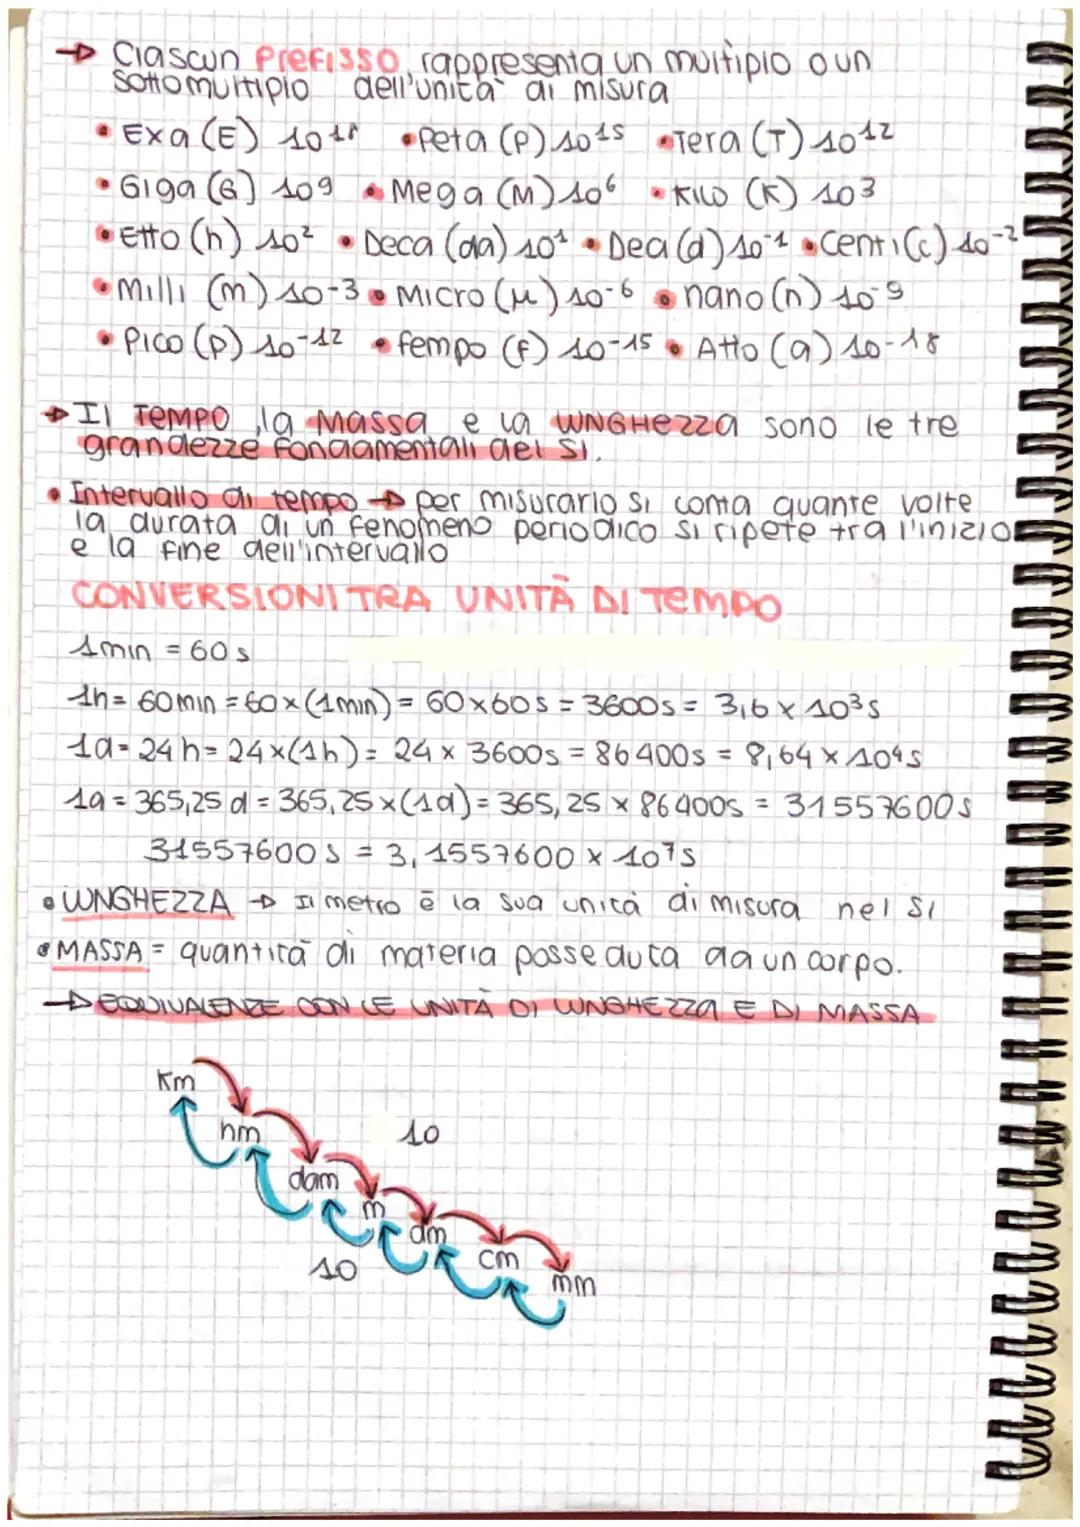 → Ciascun Prefisso rappresenta un multiplo o un
sottomultiplo dell'unità di misura
• Exa (E) 10¹⁸ • Peta (P) 10¹⁵ • Tera (T) 10¹²
• Giga (G) 10⁹ • Mega (M) 10⁶ • Kilo (K) 10³
• Etto (h) 10² • Deca (da) 10¹ • Deci (d) 10⁻¹ • Centi (c) 10⁻²
• Milli (m) 10⁻³ • Micro (μ) 10⁻⁶ • nano (n) 10⁻⁹
• Pico (p) 10⁻¹² • fempo (f) 10⁻¹⁵ • Atto (a) 10⁻¹⁸
→ Il TEMPO, la Massa e la LUNGHEZZA sono le tre
grandezze fondamentali del SI.
• Intervallo di tempo → per misurarlo si conta quante volte
la durata di un fenomeno periodico si ripete tra l'inizio
e la fine dell'intervallo
CONVERSIONI TRA UNITÀ DI TEMPO
1min = 60 s
1h = 60min = 60 × (1min) = 60×60s = 3600s = 3,6 × 10³s
1d = 24 h = 24×(1h) = 24 × 3600s = 86400s = 8,64 × 10⁴s
1a = 365,25 d = 365,25×(1d) = 365,25 × 86400s = 31557600s
31557600 s = 3,1557600 × 10⁷s
• LUNGHEZZA → Il metro è la sua unità di misura nel SI
• MASSA = quantità di materia posseduta da un corpo.
→ EQUIVALENZE CON LE UNITÀ DI LUNGHEZZA E DI MASSA
Km
hm
10
dam
m
dm
10
cm
mm